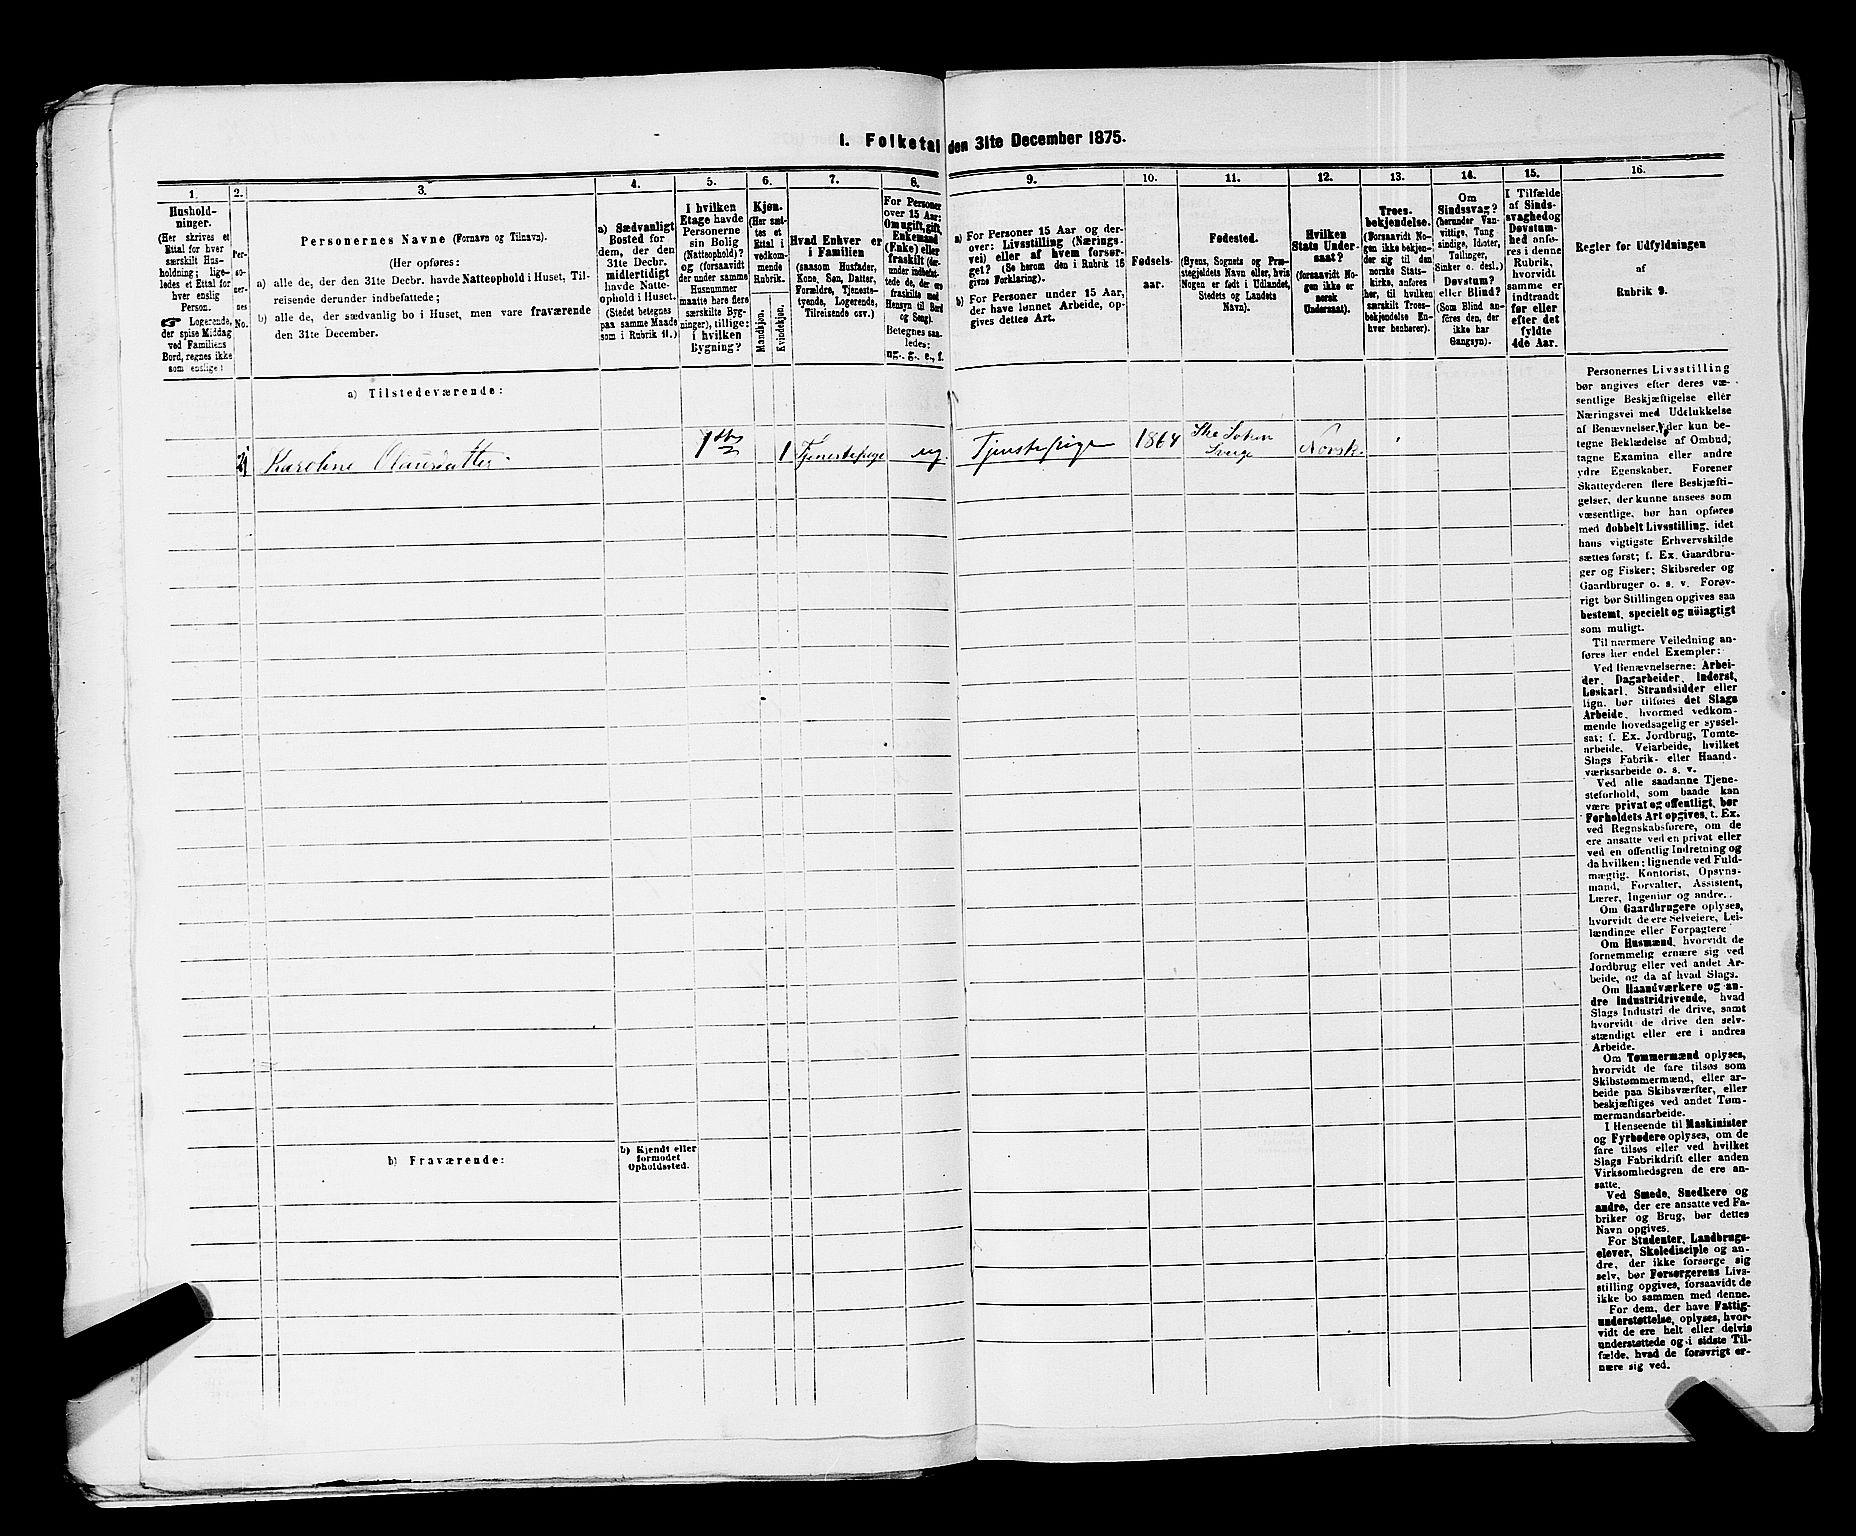 I. Folketal den 31te December 1875.
1. 2. 3. 4. 5. 6. 7. 8. 9. 10. 11. 12. 13. 14. 15. 16.
Hushold-
ninger.
(Her skrives et
Ettal for hver
særskilt Hus-
holdning; lige-
ledes et Ettal for
hver enslig
Person.
☞ Logerende,
der spise Middag
ved Familiens
Bord, regnes ikke
som enslige)
Per-
so-
ner-
nes
No.
Personernes Navne (Fornavn og Tilnavn).
(Her opføres:
a) alle de, der den 31te Decbr. havde Natteophold i Huset, Til-
reisende derunder indbefattede;
b) alle de, der sædvanlig bo i Huset, men vare fraværende
den 31te December.
a) Sædvanligt
Bosted for
dem, der den
31te Decbr.
midlertidigt
havde Natte-
ophold i Huset.
(Stedet betegnes
paa samme Maade
som i Rubrik 11.)
I hvilken
Etage havde
Personerne
sin Bolig
(Natteophold)?
og (forsaavidt
der under samme
Husnummer
maatte høre flere
særskilte Byg-
ninger), tillige:
i hvilken
Bygning?
Kjøn.
(Her sæt-
tes et
Ettal i
vedkom-
mende
Rubrik.
Mandkjøn.
Kvindekjøn.
Hvad Enhver er
i Familien
(saasom Husfader,
Kone, Søn, Datter,
Forældre, Tjeneste-
tyende, Logerende,
Tilreisende osv.)
For Personer
over 15 Aar:
Om ugift, gift,
Enkemand
(Enke) eller
fraskilt (der-
under indbefat-
tede de, der ere
fraskilte med
Hensyn til Bord
og Seng).
Betegnes saa-
ledes:
ug., g., e., f.
a) For Personer 15 Aar og der-
over: Livsstilling (Nærings-
vei) eller af hvem forsør-
get? (Se herom den i Rubrik 16
givne Forklaring).
b) For Personer under 15 Aar,
der have lønnet Arbeide, op-
gives dettes Art.
Fødsels-
aar.
Fødested.
(Byens, Sognets og Præ-
stegjeldets Navn eller, hvis
Nogen er født i Udlandet,
Stedets og Landets
Navn).
Hvilken
Stats Under-
saat?
(forsaavidt No-
gen ikke er
norsk
Undersaat).
Troes-
bekjendelse.
(Forsaavidt No-
gen ikke bekjen-
der sig til den
norske Stats-
kirke, anføres
her, til hvilken
særskilt Troes-
bekjendelse En-
hver henhører).
Om
Sindssvag?
(herunder Van-
vittige, Tung
sindige, Idioter,
Tullinger,
Sinker o. desl.)
Døvstum?
eller Blind?
(Som Blind an-
føres den, der
ikke har
Gangsyn).
I Tilfælde
af Sinds-
svaghed og
Døvstum-
hed anfø-
res i denne
Rubrik,
hvorvidt
samme er
indtraadt
før eller
efter det
fyldte
4de Aar.
Regler for Udfyldningen
af
Rubrik 9.
a) Tilstedeværende:
Karoline Olausdatter 1ste 1 Tjenestepige ug. Tjenstepige 1864 Norsk.
Sverge
b) Fraværende:
b) Kjendt eller
formodet
Opholdssted.
Personernes Livsstilling
bør angives efter deres væ-
sentlige Beskjæftigelse eller
Næringsvei med Udelukkelse
af Benævnelser, der kun be-
tegne Beklædelse af Ombud,
tagne Examina eller andre
ydre Egenskaber. Forener
Skatteyderen flere Beskjæfti-
gelser, der kunne ansees som
væsentlige, bør han opføres
med dobbelt Livsstilling, idet
hans vigtigste Erhvervskilde
sættes først; f. Ex. Gaardbru-
ger og Fisker; Skibsreder og
Gaardbruger o. s. v. Forøv-
rigt bør Stillingen opgives saa
bestemt, specielt og nöiagtigt
som muligt.
Til nærmere Veiledning an-
føres her endel Exempler:
Ved Benævnelserne: Arbei-
der, Dagarbeider, Inderst,
Løskarl, Strandsidder eller
lign. bør tilføies det Slags
Arbeide, hvormed vedkom-
mende hovedsagelig er syssel-
sat; f. Ex. Jordbrug, Tomte-
arbeide, Veiarbeide, hvilket
Slags Fabrik- eller Haand-
værksarbeide o. s. v.
Ved alle saadanne Tjene-
steforhold, som baade kan
være privat og offentligt, bør
Forholdets Art opgives, t. Ex.
ved Regnskabsførere, om de
ere ansatte ved en privat eller
ved en offentlig Indretning og
da hvilken; lignende ved Fuld-
mægtig, Kontorist, Opsyns-
mand, Forvalter, Assistent,
Lærer, Ingeniør og andre.
Om Gaardbrugere oplyses,
hvorvidt de ere Selveiere, Lei-
lændinge eller Forpagtere
Om Husmænd, hvorvidt de
fornemmelig ernære sig ved
Jordbrug eller ved andet Ar-
beide, og da af hvad Slags.
Om Haandværkere og an-
dre Industridrivende, hvad
Slags Industri de drive, samt
hvorvidt de drive den selv-
stændigt eller ere i andres
Arbeide.
Om Tømmermænd oplyses,
hvorvidt de fare tilsøs som
Skibstømmermænd, eller ar-
beide paa Skibsværfter, eller
beskjæftiges ved andet Tøm-
mermandsarbeide.
I Henseende til Maskinister
og Fyrbødere oplyses, om de
fare tilsøs eller ved hvilket
Slags Fabrikdrift eller anden
Virksomhedsgren de ere an-
satte.
Ved Smede, Snedkere og
andre, der ere ansatte ved Fa-
briker og Brug, bør dettes
Navn opgives.
For Studenter, Landbrugs-
elever, Skoledisciple og an-
dre, der ikke forsørge sig
selv, bør Forsørgerens Livs-
stilling opgives, forsaavidt de
ikke bo sammen med denne.
For dem, der have Fattig-
understøttelse, oplyses, hvor-
vidt de ere helt eller delvis
understøttede og i sidste Til-
fælde, hvad de forøvrigt er-
nære sig ved.